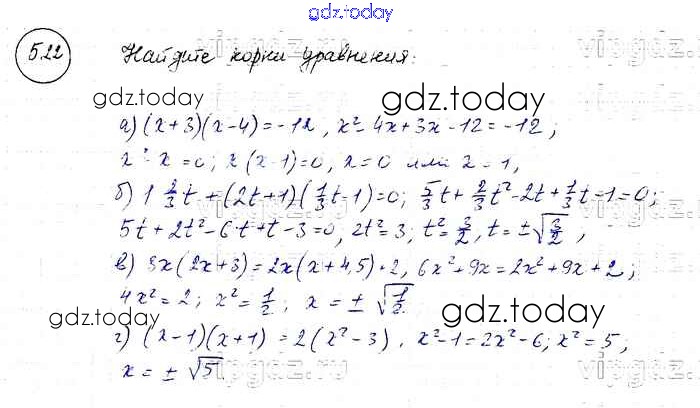 gdz.today
522 Найдите корни уравнения.
gdz.today gdz.today
а) (x+3)(x-4)=-12, x²-4x+3x-12=-12;
x²-x=0; x(x-1)=0, x=0 или x=1,
б) 1 2/3 t + (2t+1)(1/3 t-1)=0; 5/3 t + 2/3 t² - 2t + 1/3 t - 1 = 0;
5t+2t²-6t+t-3=0, 2t²=3; t²=3/2, t=±√3/2,
в) 3x(2x+3)=2x(x+4,5)+2, 6x²+9x=2x²+9x+2;
4x²=2; x²=1/2; x=±√1/2.
gdz.today gdz.today
г) (x-1)(x+1)=2(x²-3), x²-1=2x²-6; x²=5;
x=±√5